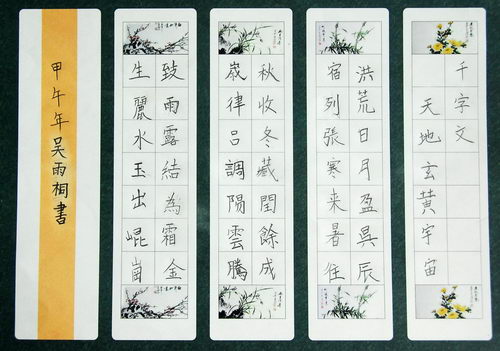 千字文
天地玄黃宇宙
洪荒日月盈昃辰
宿列張寒来暑往
秋收冬藏閏餘成
歲律呂調陽雲騰
致雨露結為霜金
生麗水玉出崐崗
甲午年吴雨桐書